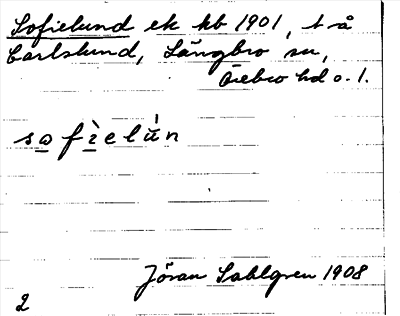 Sofielund ek kb 1901, t å
Carlslund, Längbro sn,
Örebro hd o. l.
sofìelùn
Jöran Sahlgren 1908
2